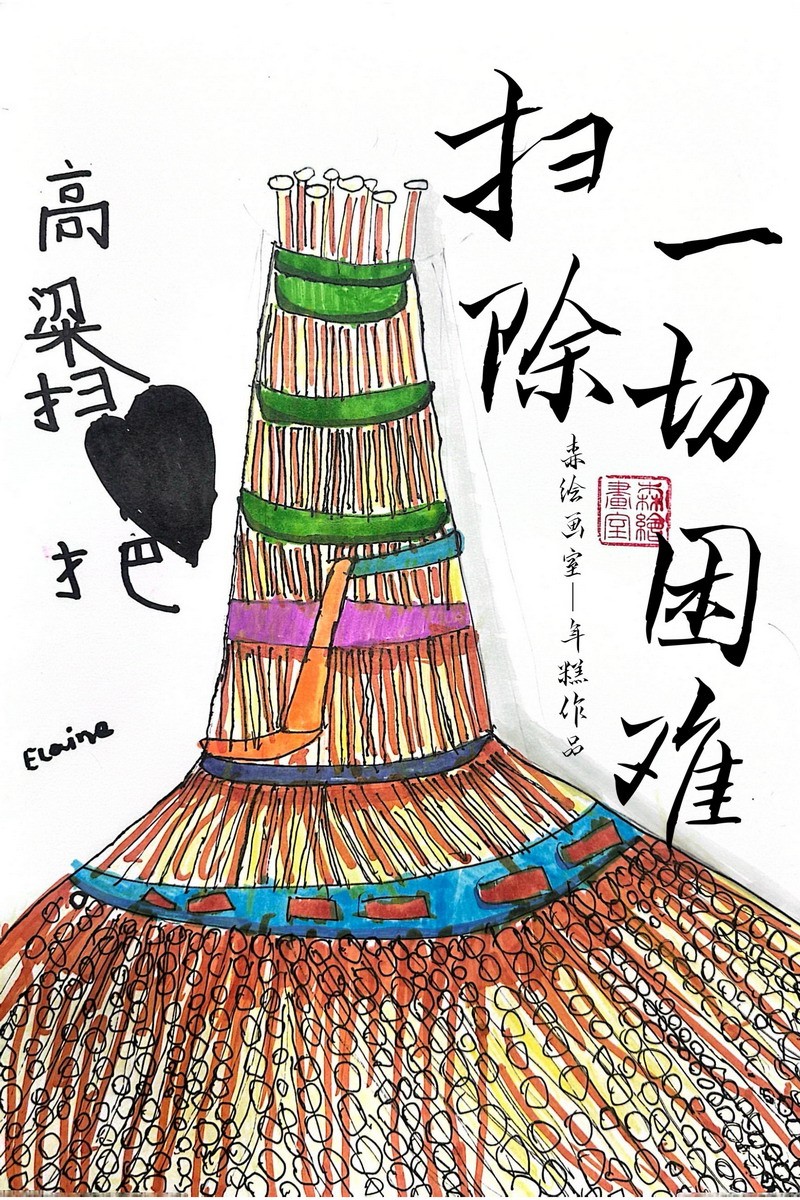 扫除
一切困难
森绘画室—年糕作品
森繪
畫室
高粱扫
把
Elaine